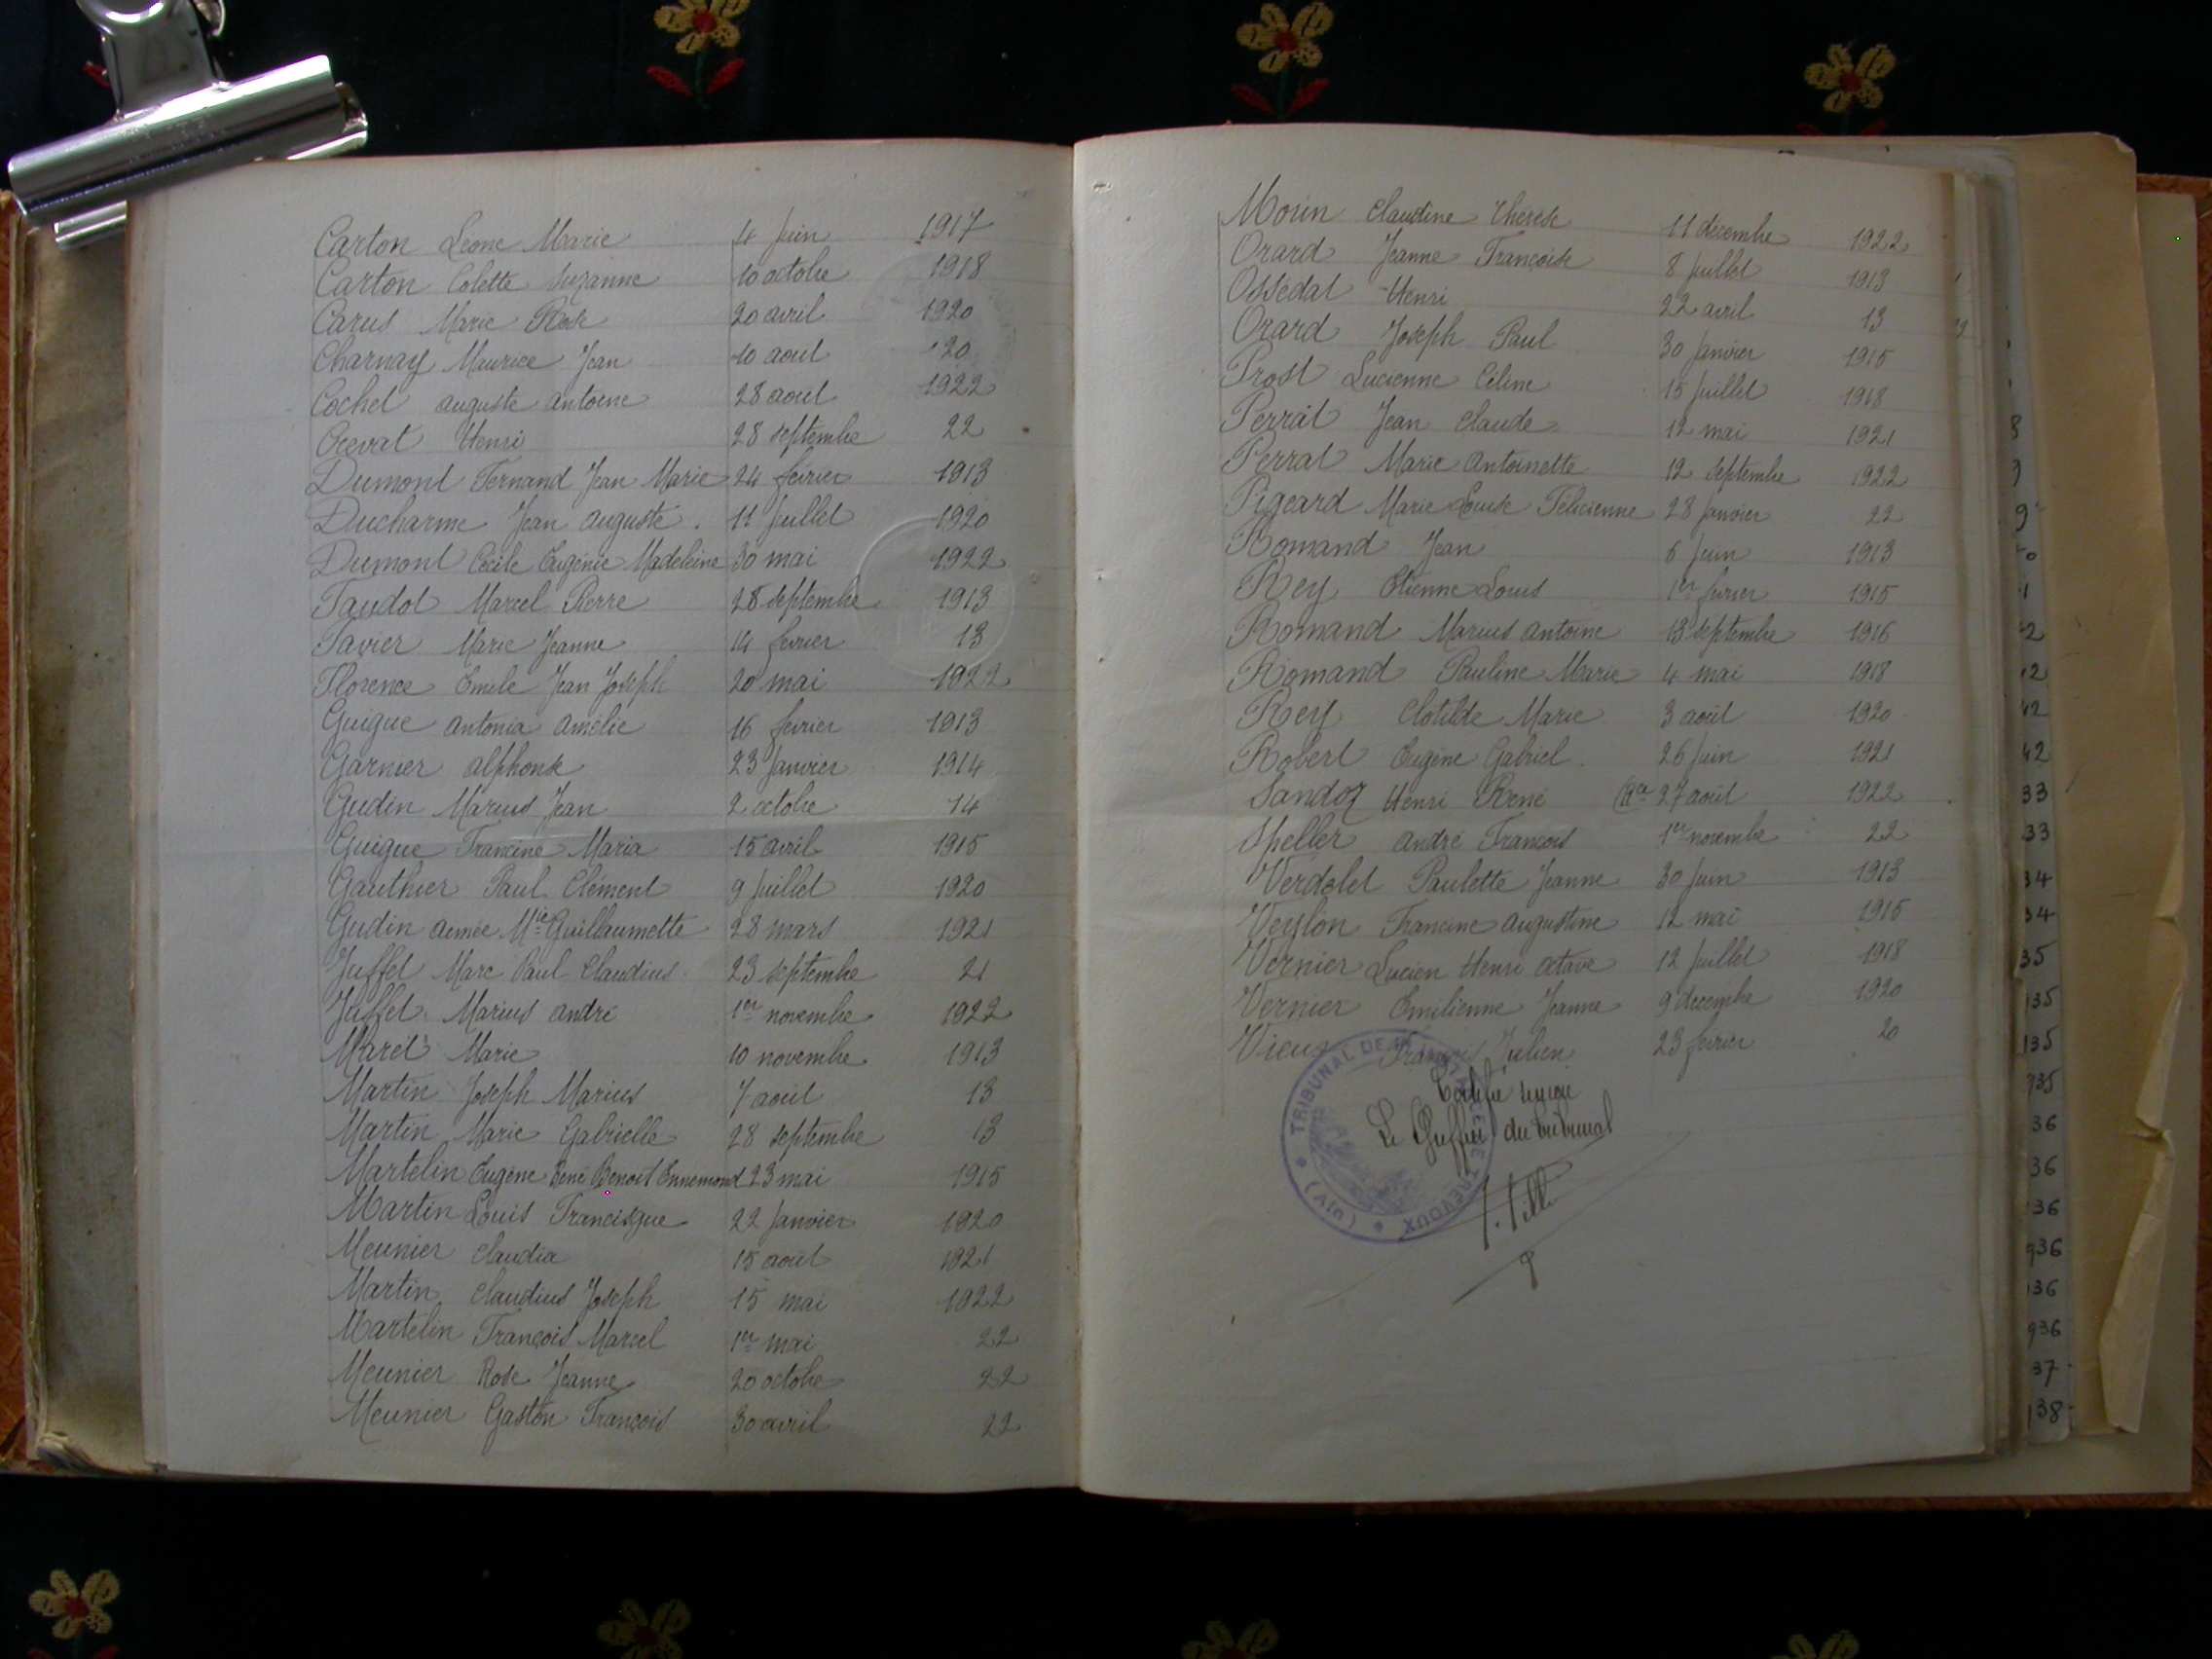 Carton Léone Marie 4 Juin 1917
Carton Colette Suzanne 10 octobre 1918
Carus Marie Rose 20 avril 1920
Charnay Maurice Jean 10 aout 20
Cochet auguste antoine 28 aout 1922
Crevat Henri 28 septembre 22
Dumont Fernand Jean Marie 24 février 1913
Ducharme Jean auguste 11 Juillet 1920
Dumont Cécile Eugénie Madeleine 30 mai 1922
Faudot Marcel Pierre 28 septembre 1913
Favier Marie Jeanne 14 février 13
Florence Emile Jean Joseph 20 mai 1922
Guigue antonia amélie 16 février 1913
Garnier alphonse 23 Janvier 1914
Gudin Marius Jean 2 octobre 14
Guigue Francine Maria 15 avril 1915
Gauthier Paul Clément 9 Juillet 1920
Gudin aimée Mie Guillaumette 28 mars 1921
Juffet Marc Paul Claudius 23 septembre 21
Juffet Marius andré 1er novembre 1922
Maret Marie 10 novembre 1913
Martin Joseph Marius 7 aout 13
Martin Marie Gabrielle 28 septembre 13
Martelin Eugène René Benoit Ennemond 23 mai 1915
Martin Louis Francisque 22 Janvier 1920
Meunier Claudia 15 aout 1921
Martin Claudius Joseph 15 mai 1922
Martelin François Marcel 1er mai 22
Meunier Rose Jeanne 20 octobre 22
Meunier Gaston François 30 avril 22
Morin Claudine Thérèse 11 décembre 1922
Orard Jeanne Françoise 8 Juillet 1913
Ossedat Henri 22 avril 13
Orard Joseph Paul 30 Janvier 1915
Prost Lucienne Céline 15 Juillet 1918
Perrat Jean Claude 12 mai 1921
Perrat Marie Antoinette 12 septembre 1922
Pigeard Marie Louise Félicienne 28 Janvier 22
Romand Jean 6 Juin 1913
Rey Etienne Louis 1er février 1915
Romand Marius antoine 13 septembre 1916
Romand Pauline Marie 4 mai 1918
Rey Clotilde Marie 3 août 1920
Robert Eugène Gabriel 26 Juin 1921
Sandoz Henri René 27 août 1922
Speller andré François 1er novembre 22
Verdelet Paulette Jeanne 30 Juin 1913
Veylon Francine augustine 12 mai 1915
Vernier Lucien Henri octave 12 Juillet 1918
Vernier Emilienne Jeanne 9 décembre 1920
Vieux François Julien 23 février 20
TRIBUNAL DE 1ère INSTANCE DE TREVOUX (AIN)
Le Greffier du tribunal
33
33
34
34
35
135
135
935
36
36
136
936
136
936
37
138